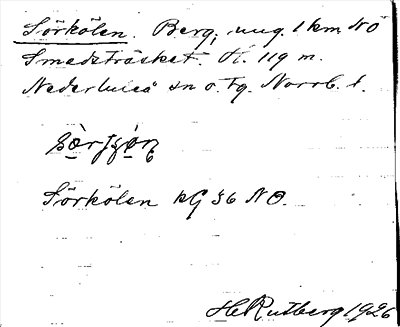 Sörkölen. Berg, ung. 1 km NO
Smedsträsket. H. 119 m.
Nederluleå sn o. tg. Norrb. l.
Sörkölen kG 36 NO.
H Rutberg 1926